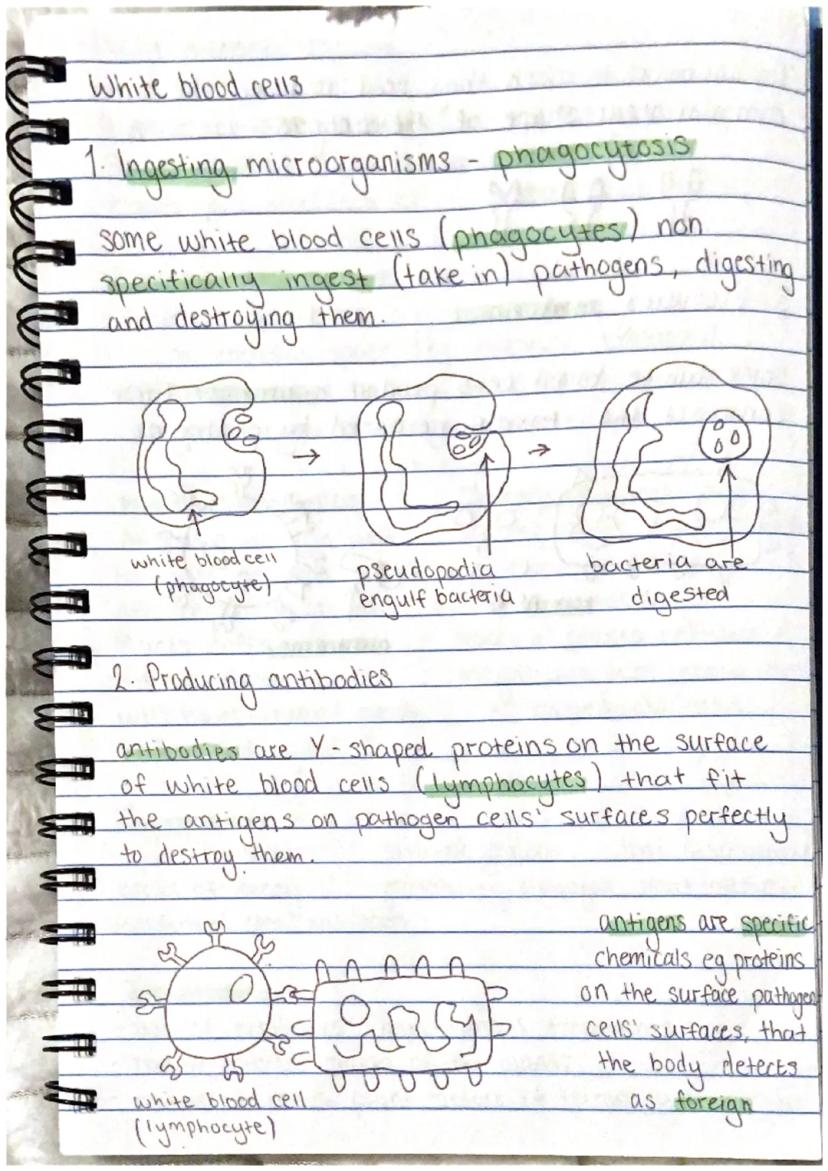 White blood cells
1. Ingesting microorganisms - phagocytosis
some white blood cells (phagocytes) non
specifically ingest (take in) pathogens, digesting
and destroying them.
white blood cell
(phagocyte)
pseudopodia
engulf bacteria
bacteria are
digested
2. Producing antibodies
antibodies are Y-shaped proteins on the surface
of white blood cells (lymphocytes) that fit
the antigens on pathogen cells' surfaces perfectly
to destroy them.
antigens are specific
chemicals eg proteins
on the surface pathogen
cells' surfaces, that
the body detects
as foreign
white blood cell
(lymphocyte)